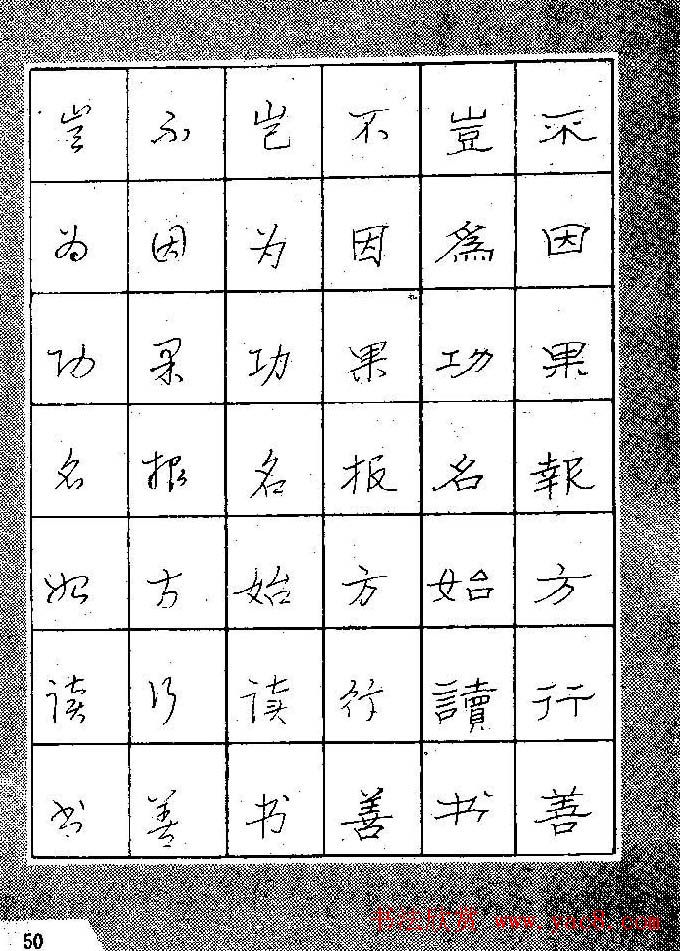 不因果報方行善
豈爲功名始讀书
不因果报方行善
岂为功名始读书
不因果报方行善
豈为功名始读书
书法欣赏 www.yac8.com
50